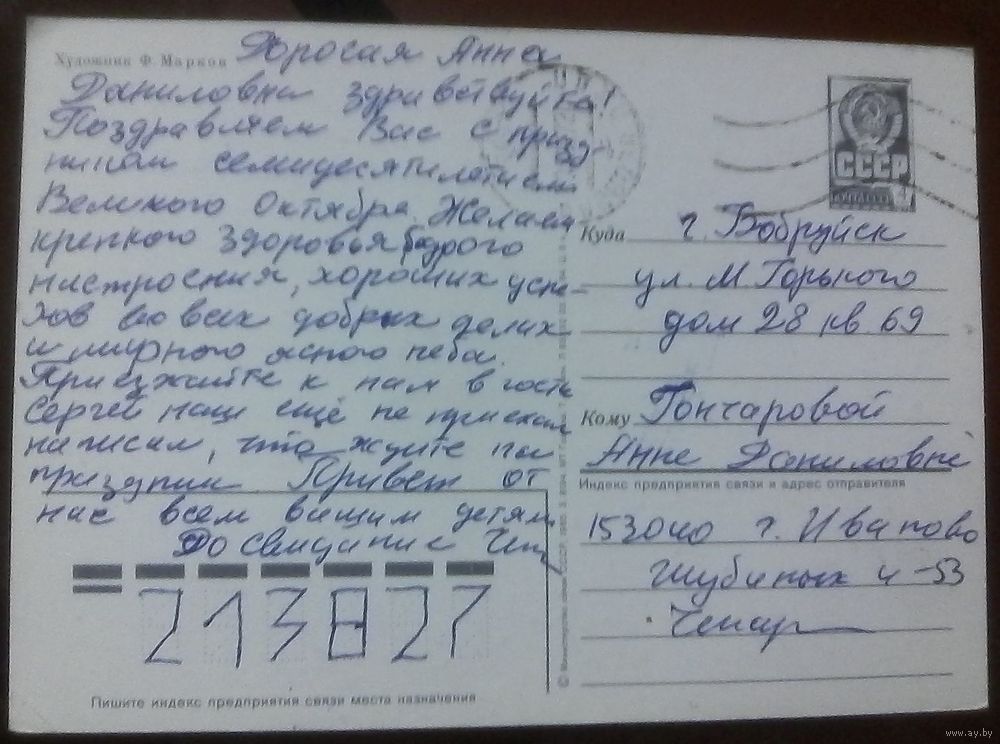 Художник Ф. Марков
Дорогая Анна
Даниловна здравствуйте!
Поздравляем Вас с празд-
ником семидесятилетием
Великого Октября. Желаем
крепкого здоровья бодрого
настроения, хороших успе-
хов во всех добрых делах
и мирного ясного неба.
Приезжайте к нам в гости
Сергей наш ещё не приехал
написал, что ждите на
праздник. Привет от
нас всем вашим детям
До свидания
213827
Пишите индекс предприятия связи места назначения
СССР
Куда г. Бобруйск
ул. М Горького
дом 28 кв 69
Кому Гончаровой
Анне Даниловне
Индекс предприятия связи и адрес отправителя
153040 г. Иваново
Шубиных 4-53
www.ay.by